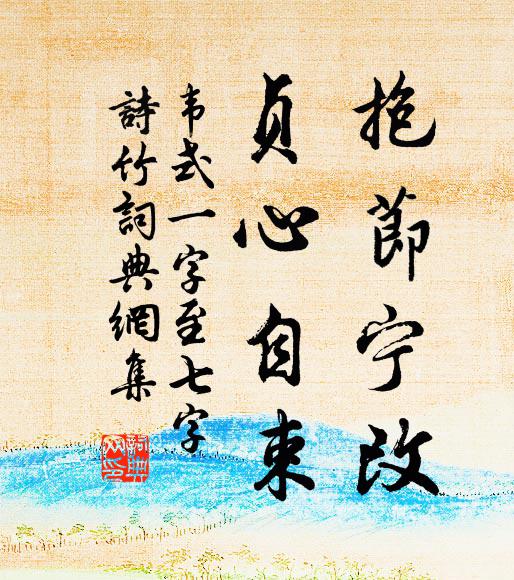 抱節宁改
貞心自束
韦式一字至七字
詩竹詞典網集